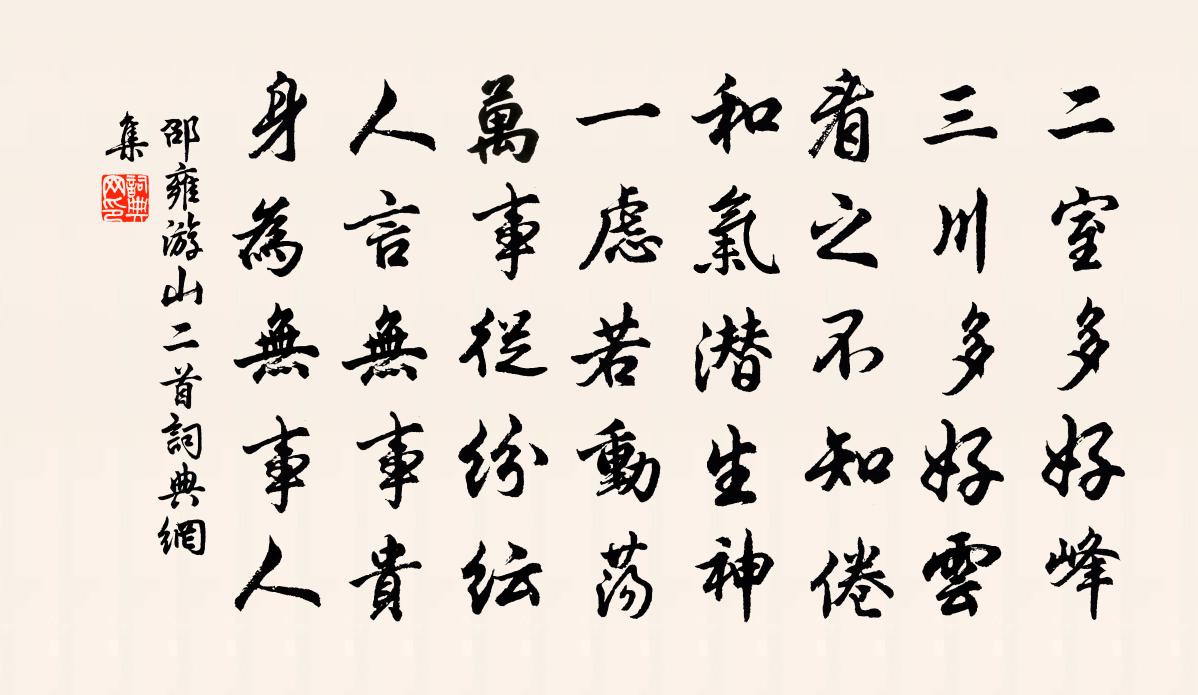 二室多好峰
三川多好雲
看之不知倦
和氣潛生神
一慮若動蕩
萬事從紛紜
人言無事貴
身為無事人
邵雍游山二首詞典網
集
詞典
网印